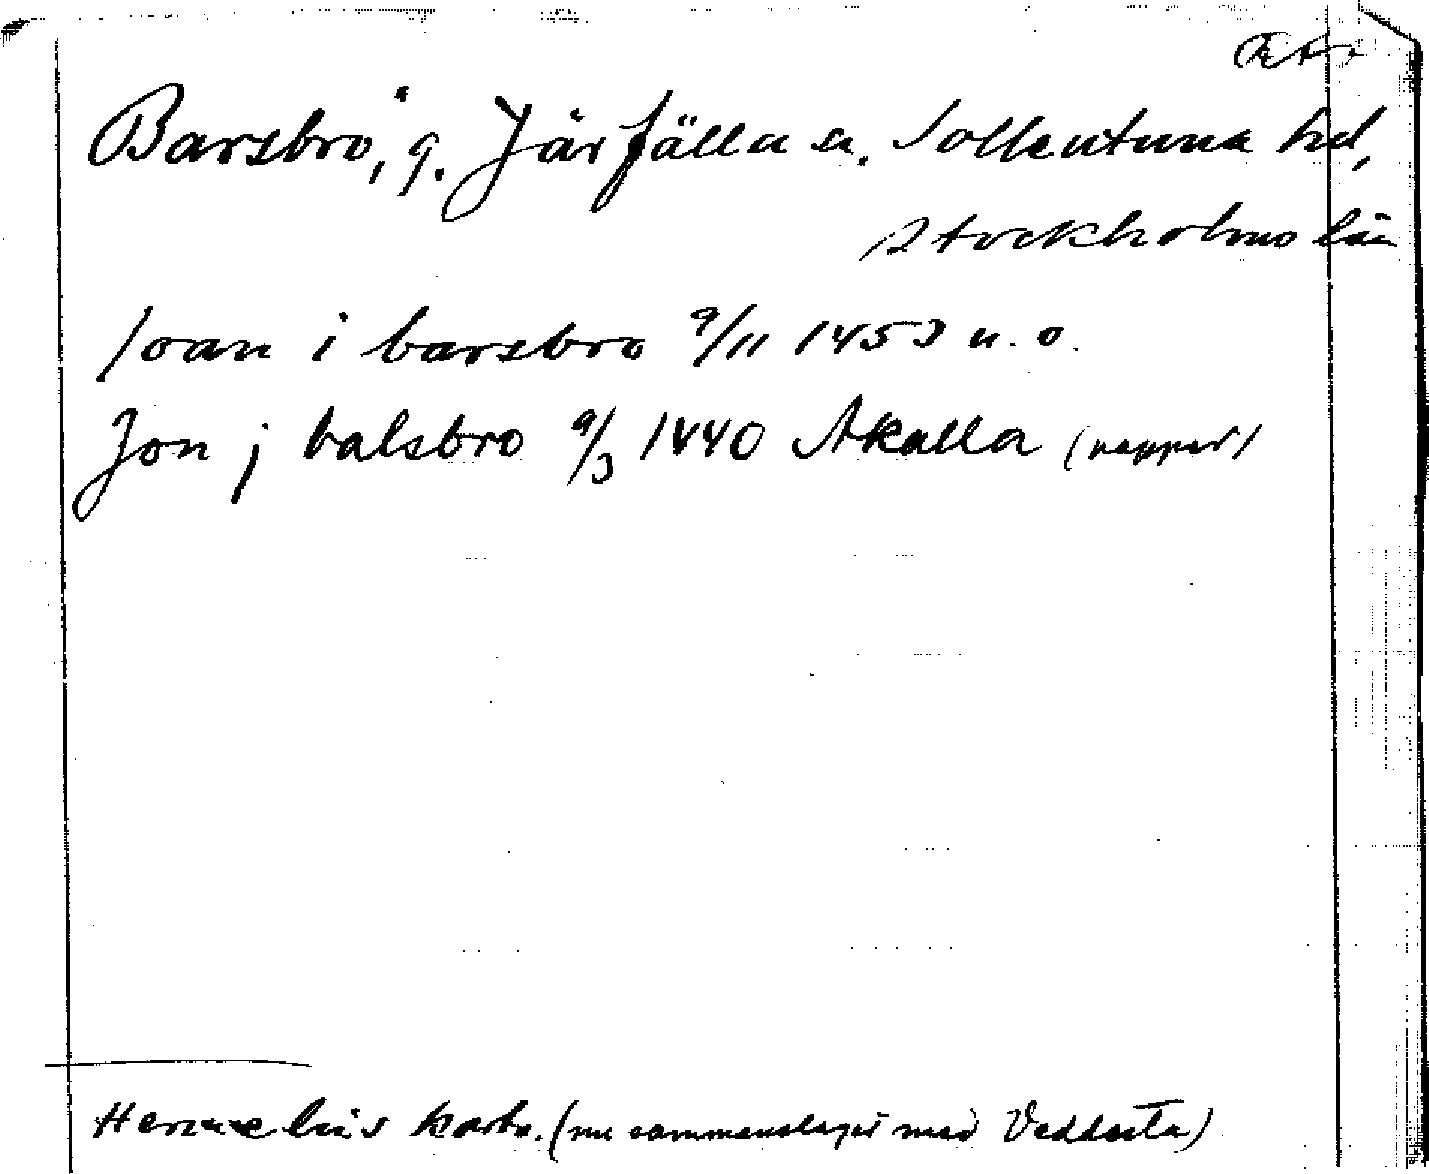 Barsbro, g. Järfälla sn. Sollentuna hd,
Stockholms län
Joan i barsbro 9/11 1453 u. o.
Jon j balsbro 9/3 1440 Akalla (papper)
Hermelins karta. (nu sammanslaget med Veddesta)